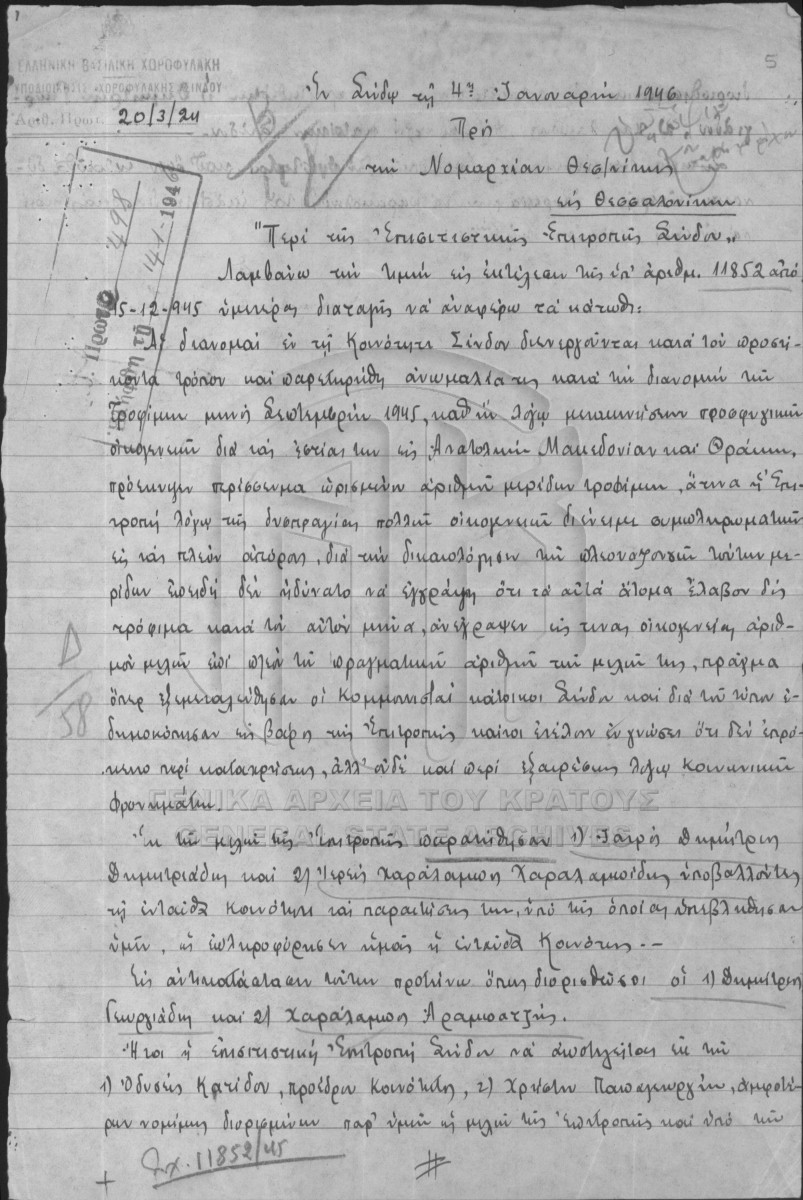 5
ΕΛΛΗΝΙΚΗ ΒΑΣΙΛΙΚΗ ΧΩΡΟΦΥΛΑΚΗ
ΥΠΟΔΙΟΙΚΗΣΙΣ ΧΩΡΟΦΥΛΑΚΗΣ ΣΙΝΔΟΥ
Ἀριθ. Πρωτ. 20/3/24
Ἐν Σίνδῳ τῇ 4ῃ Ἰανουαρίου 1946
Πρὸς
τὴν Νομαρχίαν Θεσ/νίκης
εἰς Θεσσαλονίκην
"Περὶ τῆς Ἐπισιτιστικῆς Ἐπιτροπῆς Σίνδου„
Λαμβάνω τὴν τιμὴν εἰς ἐκτέλεσιν τῆς ὑπ' ἀριθμ. 11852 ἀπὸ
15-12-945 ὑμετέρας διαταγῆς νὰ ἀναφέρω τὰ κάτωθι:
Αἱ διανομαὶ ἐν τῇ Κοινότητι Σίνδου διενεργοῦνται κατὰ τὸν προσή-
κοντα τρόπον καὶ παρετηρήθη ἀνωμαλία τις κατὰ τὴν διανομὴν τῶν
τροφίμων μηνὸς Σεπτεμβρίου 1945, καθ' ἣν λόγῳ μετακινήσεων προσφυγικῶν
οἰκογενειῶν διὰ τὰς ἑστίας των εἰς Ἀνατολικὴν Μακεδονίαν καὶ Θράκην,
προέκυψεν περίσσευμα ὡρισμένου ἀριθμοῦ μερίδων τροφίμων, ἅτινα ἡ Ἐπι-
τροπὴ λόγῳ τῆς δυσπραγίας πολλῶν οἰκογενειῶν διένειμε συμπληρωματικῶς
εἰς τὰς πλέον ἀπόρους, διὰ τὴν δικαιολόγησιν τῶν πλεοναζουσῶν τούτων με-
ρίδων ἐπειδὴ δὲν ἠδύνατο νὰ ἐγγράψῃ ὅτι τὰ αὐτὰ ἄτομα ἔλαβον δὶς
τρόφιμα κατὰ τὸν αὐτὸν μῆνα, ἀνέγραψεν εἰς τινας οἰκογενείας ἀριθ-
μὸν μελῶν ἐπὶ πλέον τοῦ πραγματικοῦ ἀριθμοῦ τῶν μελῶν της, πρᾶγμα
ὅπερ ἐξεμεταλεύθησαν οἱ Κομμουνισταὶ κάτοικοι Σίνδου καὶ διὰ τοῦ τύπου ἐ-
δημοκόπησαν εἰς βάρος τῆς Ἐπιτροπῆς καίτοι ἐτέλουν ἐν γνώσει ὅτι δὲν ἐπρό-
κειτο περὶ καταχρήσεως, ἀλλ' οὐδὲ καὶ περὶ ἐξαιρέσεως λόγῳ κοινωνικῶν
φρονημάτων.
Ἐκ τῶν μελῶν τῆς Ἐπιτροπῆς παρῃτήθησαν 1) Ἰατρὸς Δημήτριος
Δημητριάδης καὶ 2) Ἱερεὺς Χαράλαμπος Χαραλαμπίδης ὑποβαλλόντες
τῇ ἐνταῦθα Κοινότητι τὰς παραιτήσεις των, ὑπὸ τῆς ὁποίας ὑπεβλήθησαν
ὑμῖν, ὡς ἐπληροφόρησεν ἡμᾶς ἡ ἐνταῦθα Κοινότης.–
Εἰς ἀντικατάστασιν τούτων προτείνω ὅπως διορισθῶσι οἱ 1) Δημήτριος
Γεωργιάδης καὶ 2) Χαράλαμπος Ἀραμπατζῆς.
Ἤτοι ἡ ἐπισιτιστικὴ Ἐπιτροπὴ Σίνδου νὰ ἀποτελεῖται ἐκ τῶν
1) Ὀδυσσέως Κατίδου, προέδρου Κοινότητος, 2) Χρήστου Παπαγεωργίου, ἀμφοτέ-
ρων νομίμως διορισμένων παρ' ὑμῶν ὡς μελῶν τῆς Ἐπιτροπῆς καὶ ὑπὸ τῶν
Σχ. 11852/45
498
14-1-1946
Δ/58
ΓΕΝΙΚΑ ΑΡΧΕΙΑ ΤΟΥ ΚΡΑΤΟΥΣ
GENERAL STATE ARCHIVES